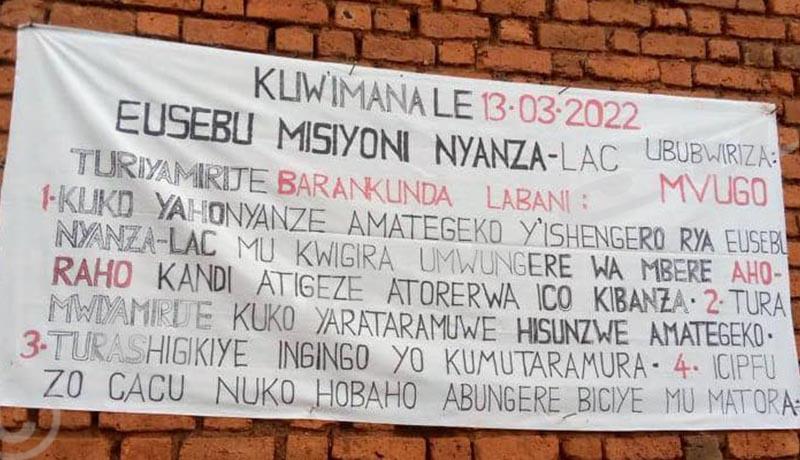 KUW'IMANA LE 13·03·2022
EUSEBU MISIYONI NYANZA-LAC UBUBWIRIZA:
TURIYAMIRIJE BARANKUNDA LABANI: MVUGO
1·KUKO YAHONYANZE AMATEGEKO Y'ISHENGERO RYA EUSEBU
NYANZA-LAC MU KWIGIRA UMWUNGERE WA MBERE AHO-
RAHO KANDI ATIGEZE ATORERWA ICO KIBANZA· 2· TURA
MWIYAMIRIJE KUKO YARATARAMUWE HISUNZWE AMATEGEKO·
3·TURASHIGIKIYE INGINGO YO KUMUTARAMURA· 4· ICIPFU
ZO CACU NUKO HOBAHO ABUNGERE BICIYE MU MATORA: